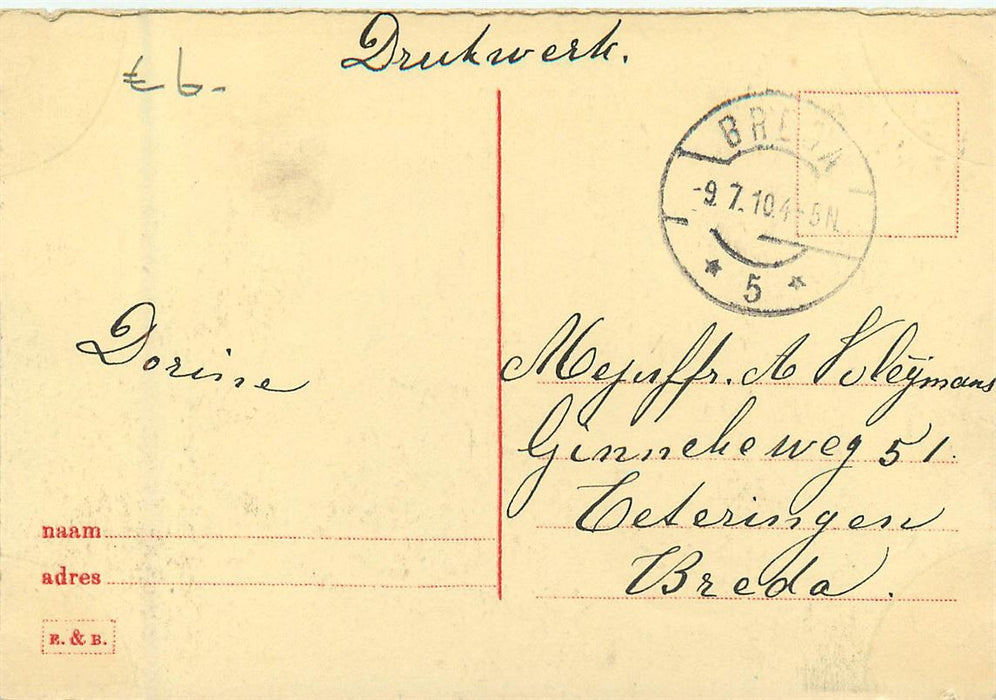 Drukwerk.
£ 6.-
BREDA
-9.7.10.4-5N.
* 5 *
Dorine
Mejuffr. A Kleÿmans
Ginnekeweg 51.
Teteringen
Breda.
naam
adres
E. & B.